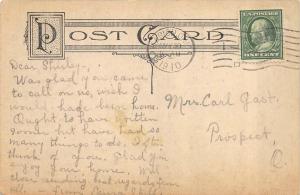 POST CARD
U.S. POSTAGE
ONE CENT
1910
Dear Shirley:-
Was glad you came
to call on us, wish I
would hade been home.
Ought to have written
sooner but have had so
many things to do. I oft
think of you. Glad you
enjoy your home, Will
close sending best regards from
all.
Mrs. Carl Gast.
Prospect,
O.